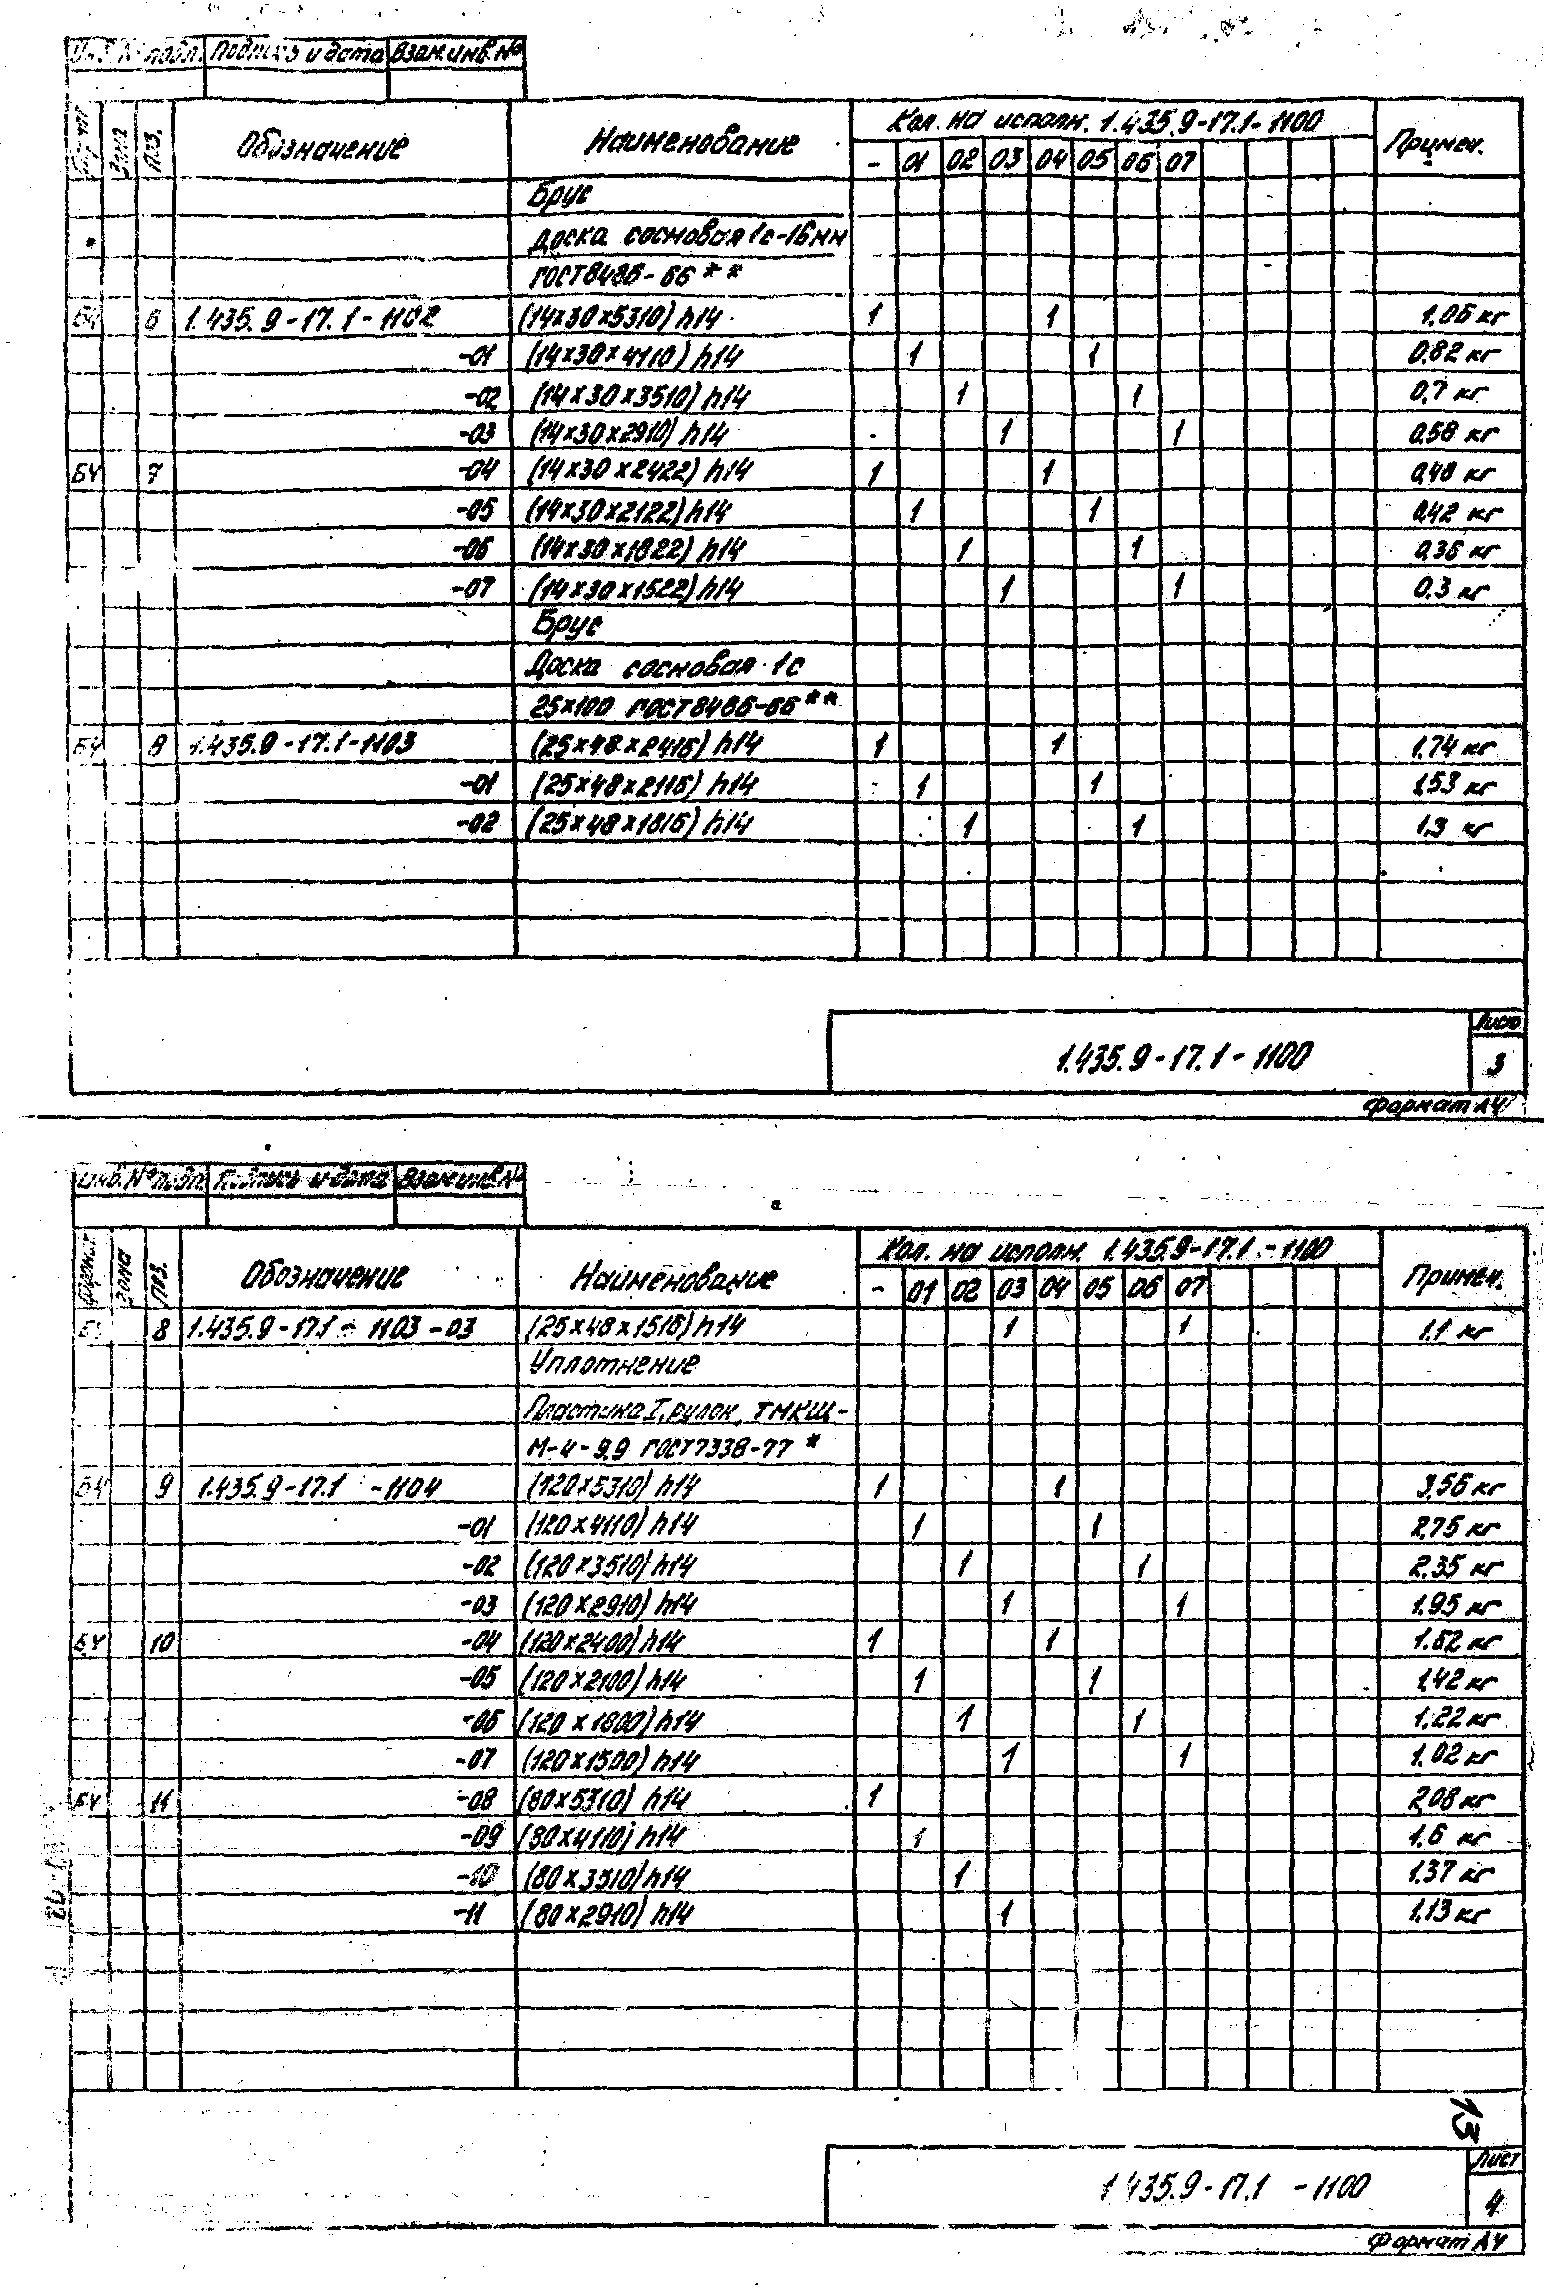 Инв. № подл. Подпись и дата Взам.инв.№
Формат Зона Поз. Обозначение Наименование Кол. на исполн. 1.435.9-17.1-1100 Примеч.
- 01 02 03 04 05 06 07
Брус
доска сосновая 1с-16мм
ГОСТ 8486-66**
БЧ 6 1.435.9-17.1-1102 (14х30х5310) h14 1 1 1,06 кг
-01 (14х30х4110) h14 1 1 0,82 кг
-02 (14х30х3510) h14 1 1 0,7 кг
-03 (14х30х2910) h14 1 1 0,58 кг
БЧ 7 -04 (14х30х2422) h14 1 1 0,48 кг
-05 (14х30х2122) h14 1 1 0,42 кг
-06 (14х30х1822) h14 1 1 0,36 кг
-07 (14х30х1522) h14 1 1 0,3 кг
Брус
Доска сосновая 1с
25х100 ГОСТ 8486-66**
БЧ 8 1.435.9-17.1-1103 (25х48х2416) h14 1 1 1,74 кг
-01 (25х48х2116) h14 1 1 1,53 кг
-02 (25х48х1816) h14 1 1 1,3 кг
Лист
1.435.9-17.1-1100 3
Формат А4
Инв.№ подл. Подпись и дата Взам.инв.№
Формат Зона Поз. Обозначение Наименование Кол. на исполн. 1.435.9-17.1-1100 Примеч.
- 01 02 03 04 05 06 07
8 1.435.9-17.1-1103-03 (25х48х1516) h14 1 1 1,1 кг
Уплотнение
Пластина I, рулон, ТМКЩ-
М-4-9,9 ГОСТ 7338-77*
БЧ 9 1.435.9-17.1 -1104 (120х5310) h14 1 1 3,56 кг
-01 (120х4110) h14 1 1 2,75 кг
-02 (120х3510) h14 1 1 2,35 кг
-03 (120х2910) h14 1 1 1,95 кг
БЧ 10 -04 (120х2400) h14 1 1 1,62 кг
-05 (120х2100) h14 1 1 1,42 кг
-06 (120х1800) h14 1 1 1,22 кг
-07 (120х1500) h14 1 1 1,02 кг
БЧ 11 -08 (80х5310) h14 1 2,08 кг
-09 (80х4110) h14 1 1,6 кг
-10 (80х3510) h14 1 1,37 кг
-11 (80х2910) h14 1 1,13 кг
13
Лист
1.435.9-17.1 -1100 4
Формат А4